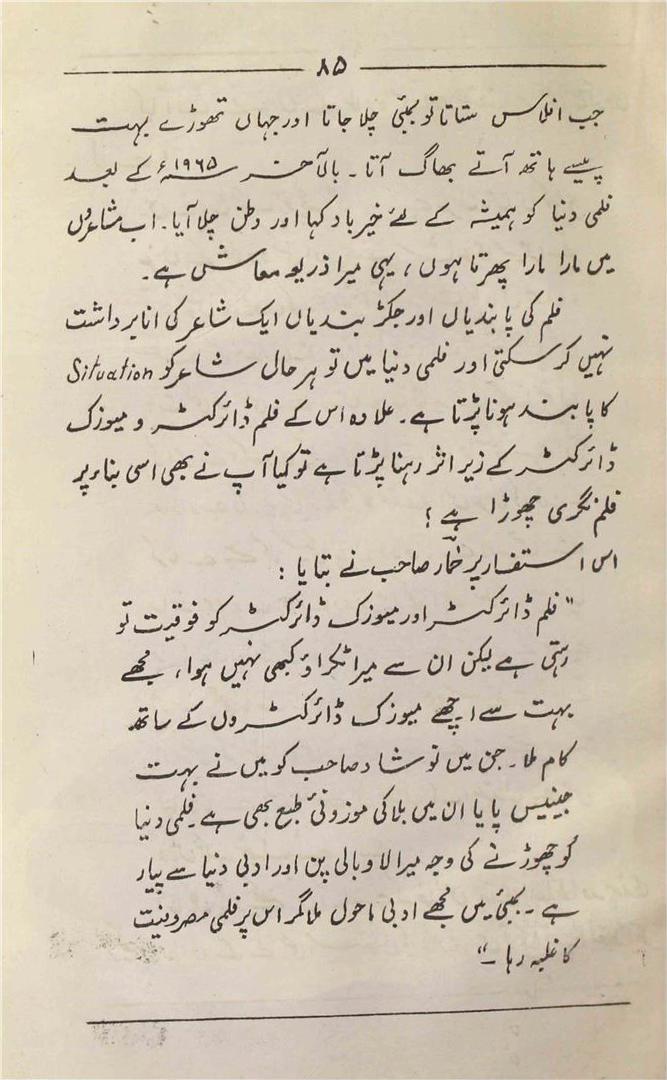 ۸۵
جب افلاس ستاتا تو بمبئی چلا جاتا اور جہاں تھوڑے بہت
پیسے ہاتھ آتے بھاگ آتا۔ بالآخر ۱۹۶۵ء کے بعد
فلمی دنیا کو ہمیشہ کے لئے خیر باد کہا اور وطن چلا آیا۔ اب مشاعروں
میں مارا مارا پھرتا ہوں، یہی میرا ذریعہ معاش ہے۔
فلم کی پابندیاں اور جکڑ بندیاں ایک شاعر کی انا برداشت
نہیں کرسکتی اور فلمی دنیا میں تو ہر حال شاعر کو Situation
کا پابند ہونا پڑتا ہے۔ علاوہ اس کے فلم ڈائرکٹر و میوزک
ڈائرکٹر کے زیر اثر رہنا پڑتا ہے تو کیا آپ نے بھی اسی بناء پر
فلم نگری چھوڑا ہے؟
اس استفسار پر خمار صاحب نے بتایا:
"فلم ڈائرکٹر اور میوزک ڈائرکٹر کو فوقیت تو
رہتی ہے لیکن ان سے میرا ٹکراؤ کبھی نہیں ہوا، مجھے
بہت سے اچھے میوزک ڈائرکٹروں کے ساتھ
کام ملا۔ جن میں نوشاد صاحب کو میں نے بہت
جینیس پایا ان میں بلا کی موزونئ طبع بھی ہے۔ فلمی دنیا
کو چھوڑنے کی وجہ میرا لاوبالی پن اور ادبی دنیا سے پیار
ہے۔ بمبئی میں مجھے ادبی ماحول ملا مگر اس پر فلمی مصروفیت
کا غلبہ رہا۔"